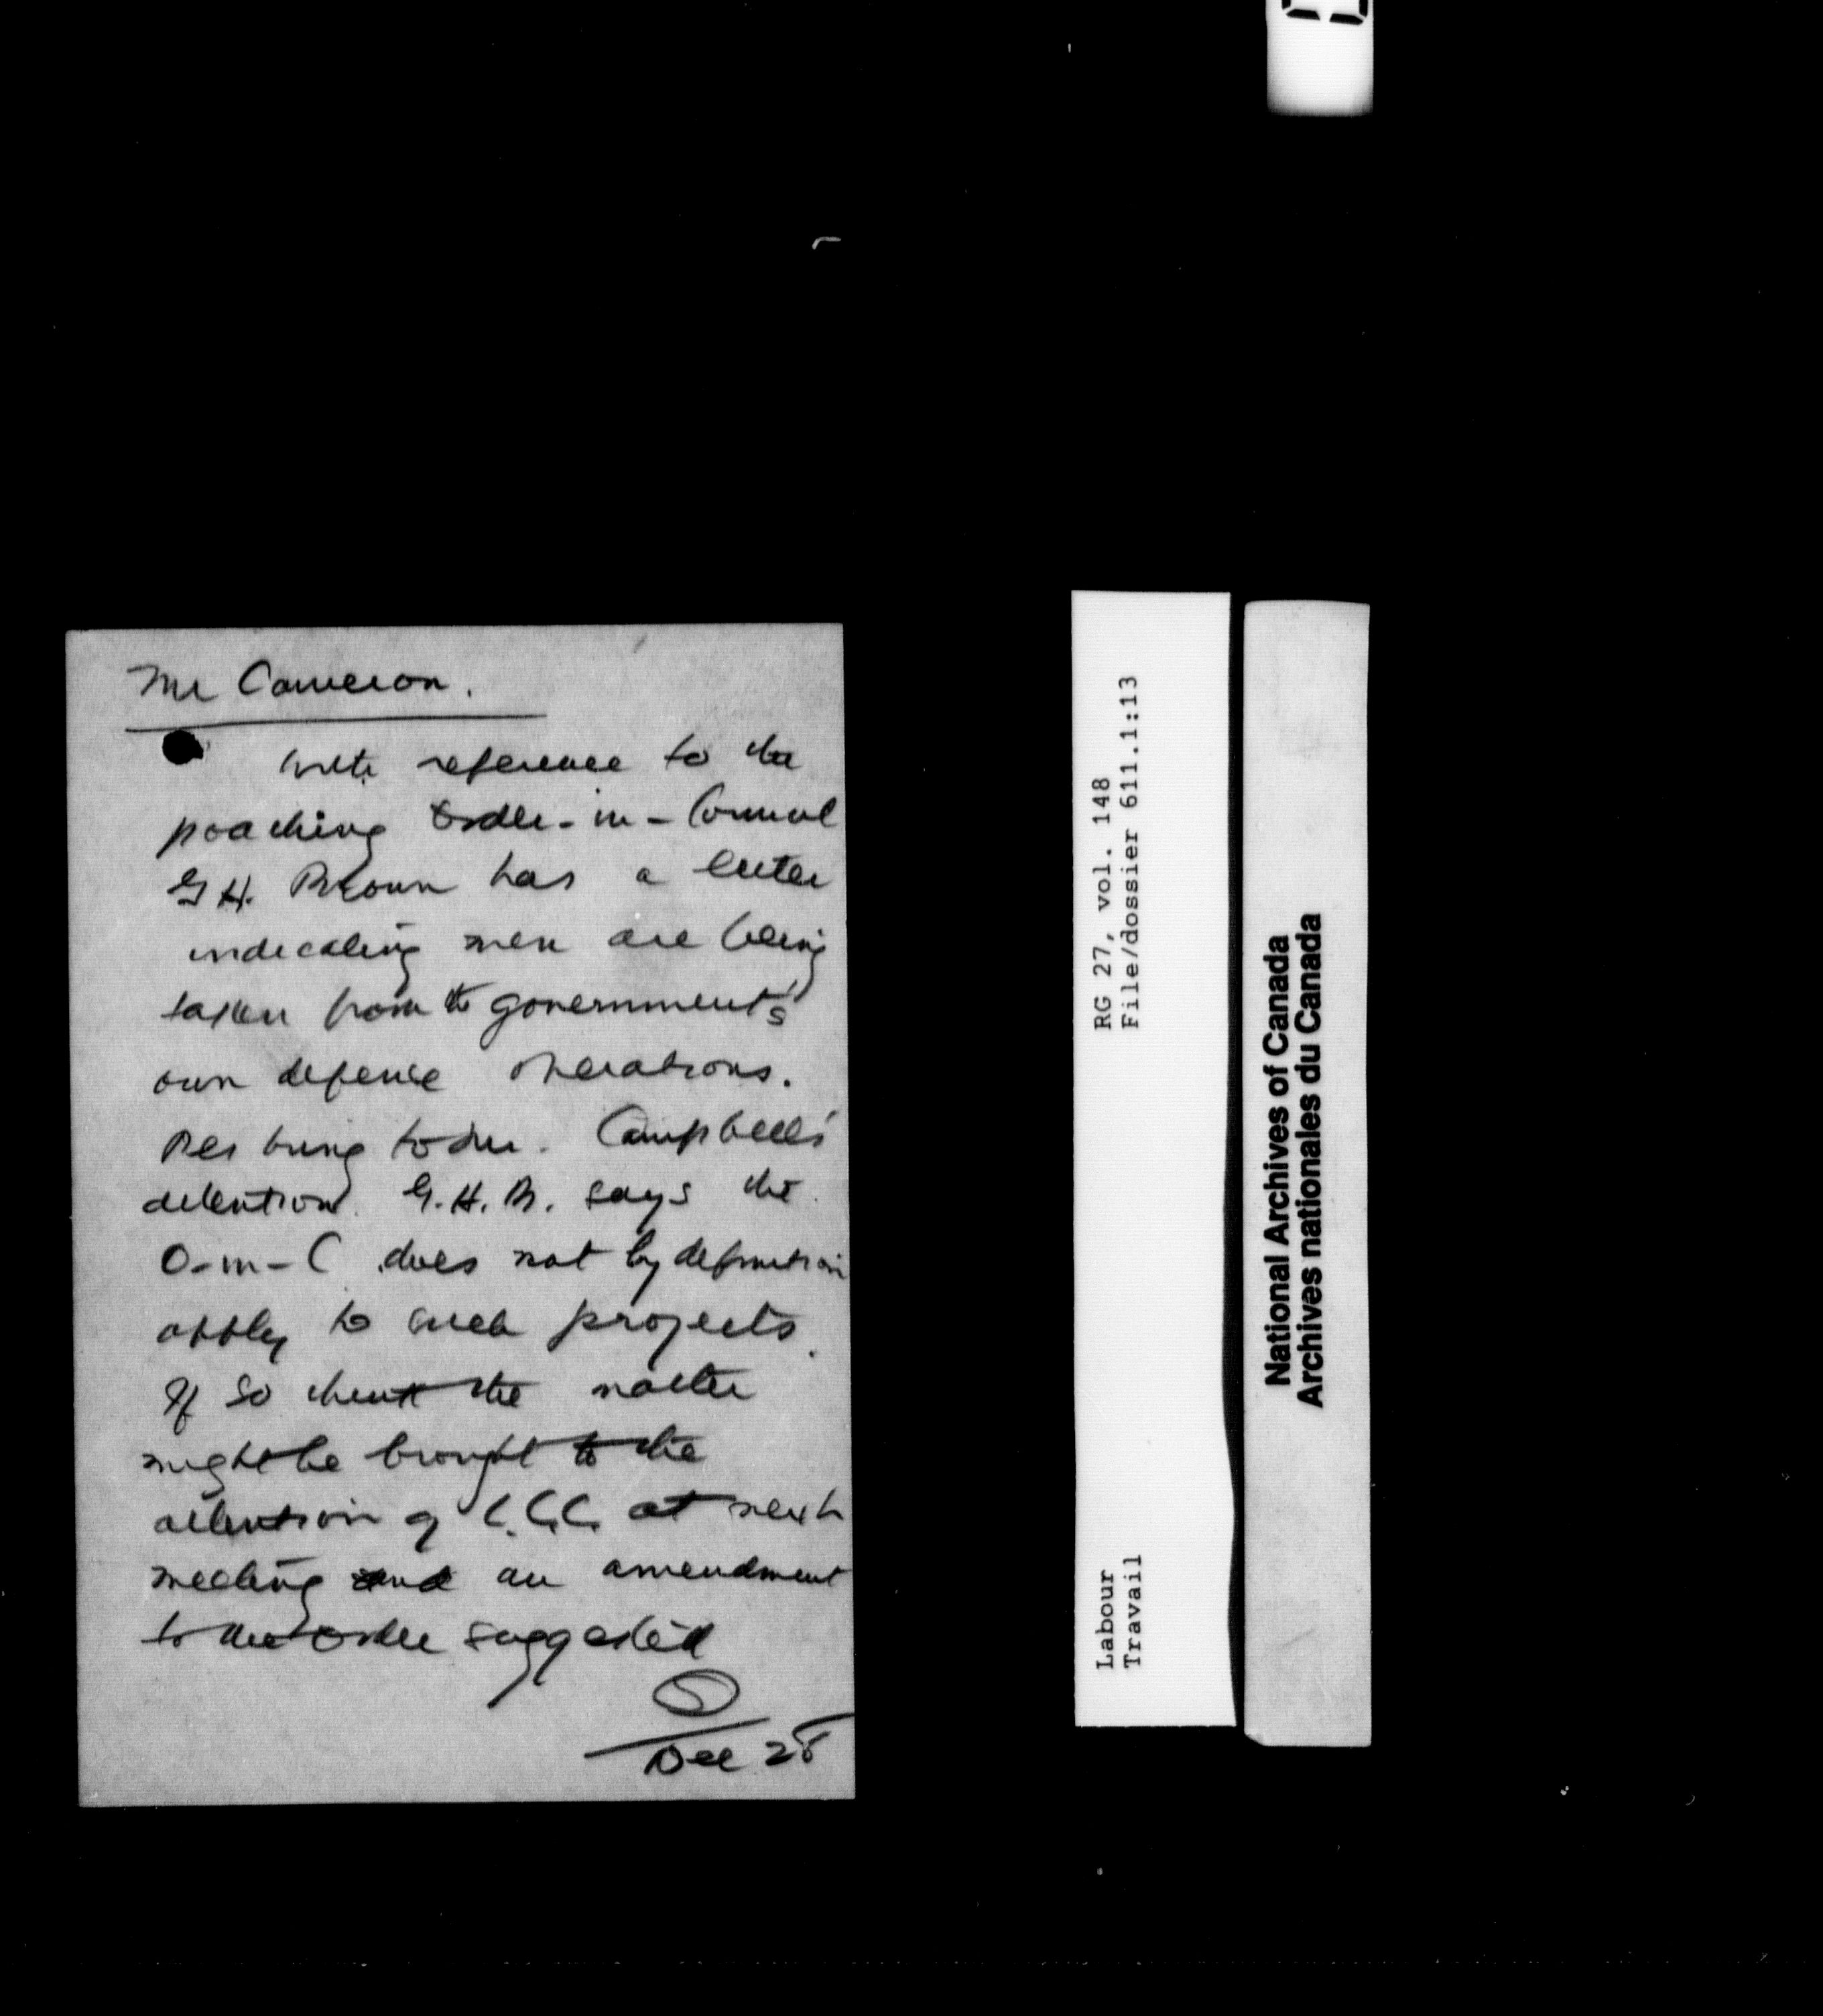 Mr Cameron.
With reference to the
poaching Order-in-Council
G.H. Brown has a letter
indicating men are being
taken from the government's
own defence operations.
Pls bring to Mr. Campbell's
attention. G.H.B. says the
O-in-C does not by definition
apply to such projects.
If so then the matter
might be brought to the
attention of L.C.C. at next
meeting and an amendment
to the Order suggested
Dec 28
RG 27, vol. 148
File/dossier 611.1:13
Labour
Travail
National Archives of Canada
Archives nationales du Canada